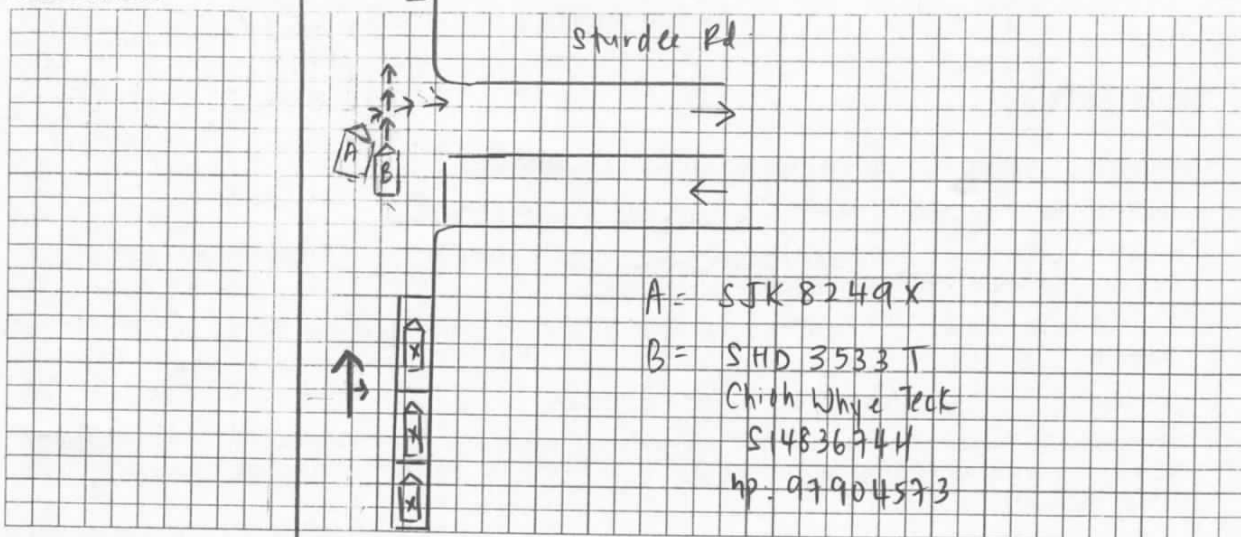 Sturdee Rd
A
B
A = SJK 8249X
B = SHD 3533 T
Chioh Whye Teck
S1483674H
hp. 97904573
X
X
X